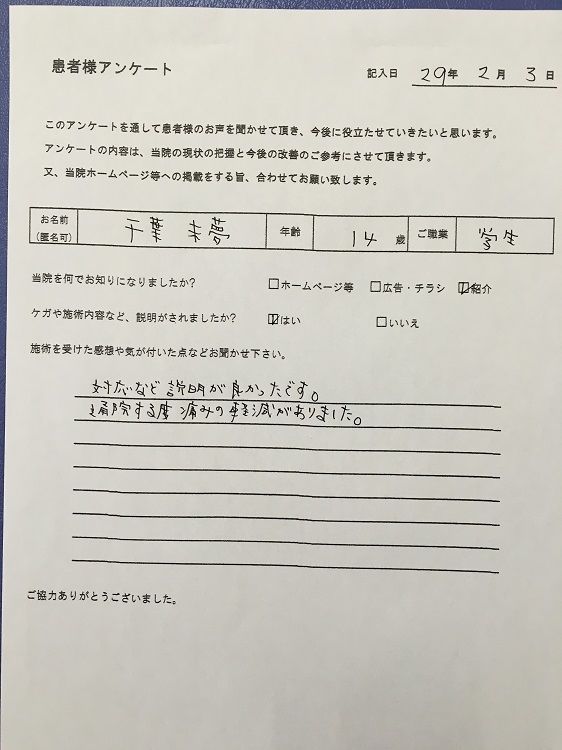 患者様アンケート
記入日 29年 2月 3日
このアンケートを通して患者様のお声を聞かせて頂き、今後に役立たせていきたいと思います。
アンケートの内容は、当院の現状の把握と今後の改善のご参考にさせて頂きます。
又、当院ホームページ等への掲載をする旨、合わせてお願い致します。
お名前(匿名可) 千葉 未夢 年齢 14歳 ご職業 学生
当院を何でお知りになりましたか? □ホームページ等 □広告・チラシ ☑紹介
ケガや施術内容など、説明がされましたか? ☑はい □いいえ
施術を受けた感想や気が付いた点などお聞かせ下さい。
対応など説明が良かったです。
通院する度痛みの軽減がありました。
ご協力ありがとうございました。